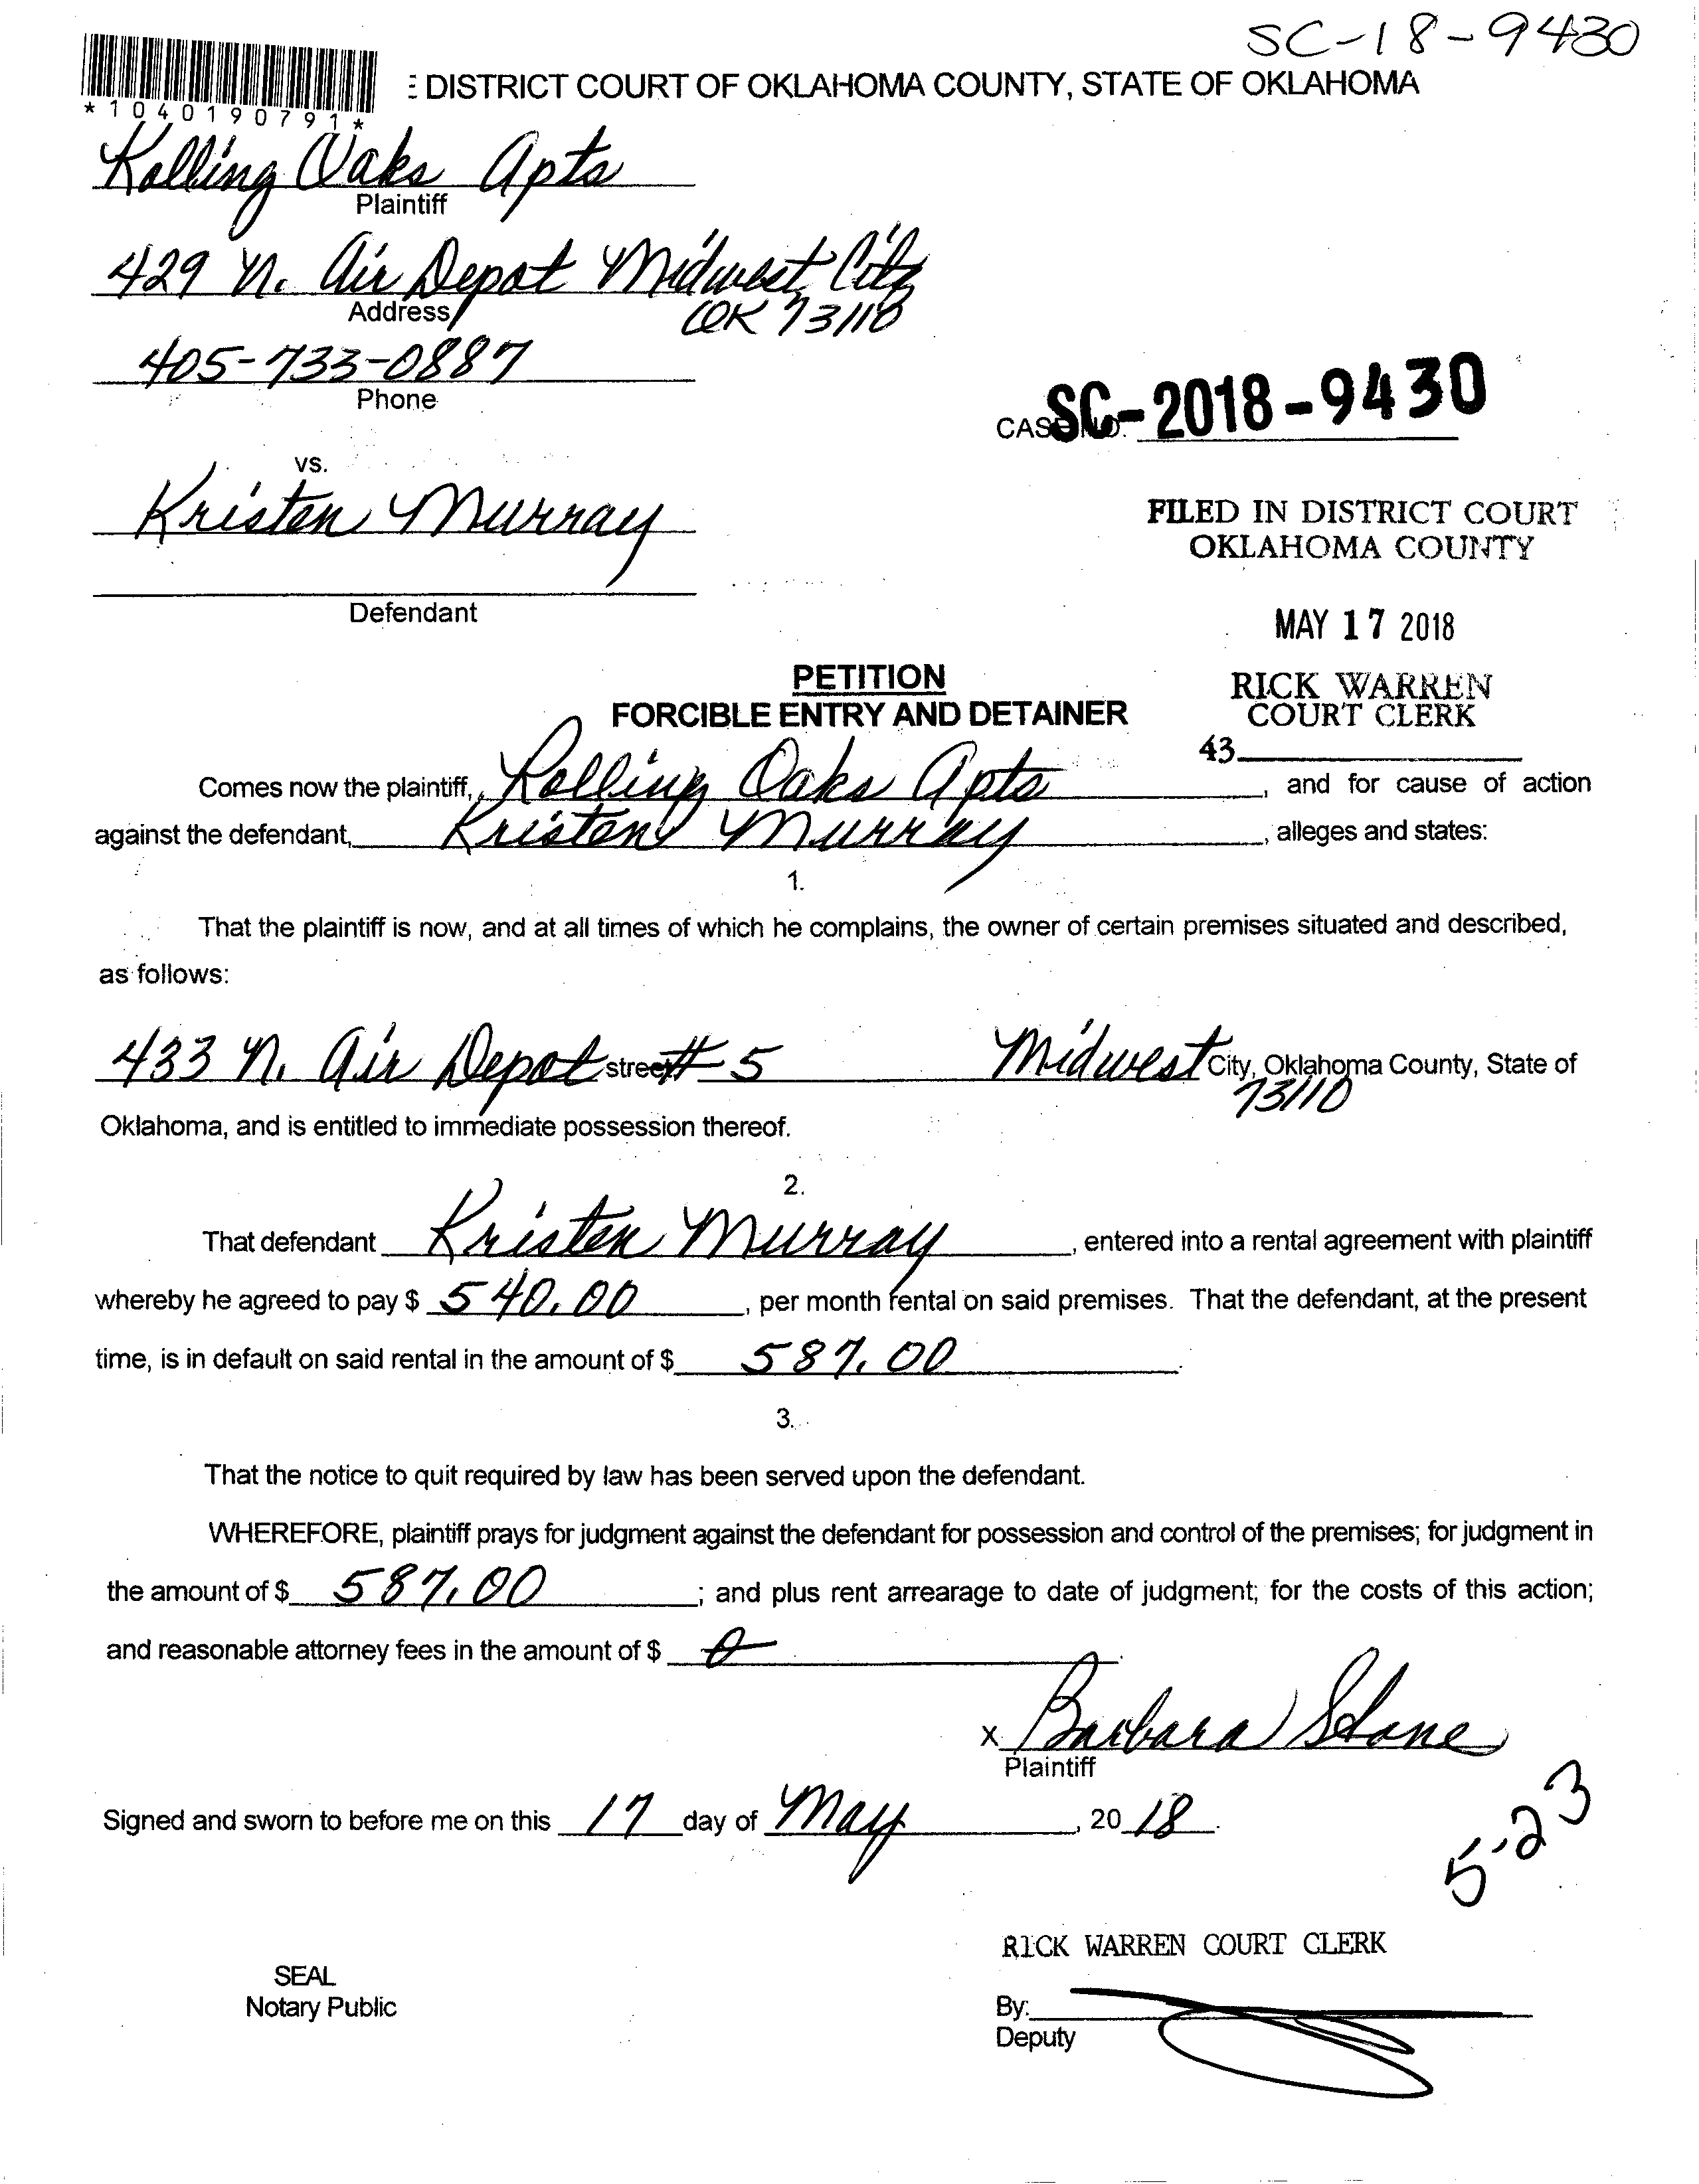 SC-18-9430
: DISTRICT COURT OF OKLAHOMA COUNTY, STATE OF OKLAHOMA
*1040190791*
Rolling Oaks Apts
Plaintiff
429 N. Air Depot Midwest City
Address
OK 73110
405-733-0887
Phone
CASE NO. SC-2018-9430
vs.
Kristen Murray
FILED IN DISTRICT COURT
OKLAHOMA COUNTY
Defendant
MAY 17 2018
PETITION
RICK WARREN
FORCIBLE ENTRY AND DETAINER
COURT CLERK
43
Comes now the plaintiff, Rolling Oaks Apts, and for cause of action
against the defendant, Kristen Murray, alleges and states:
1.
That the plaintiff is now, and at all times of which he complains, the owner of certain premises situated and described,
as follows:
433 N. Air Depot street #5 Midwest City, Oklahoma County, State of
73110
Oklahoma, and is entitled to immediate possession thereof.
2.
That defendant Kristen Murray, entered into a rental agreement with plaintiff
whereby he agreed to pay $ 540.00, per month rental on said premises. That the defendant, at the present
time, is in default on said rental in the amount of $ 587.00.
3.
That the notice to quit required by law has been served upon the defendant.
WHEREFORE, plaintiff prays for judgment against the defendant for possession and control of the premises; for judgment in
the amount of $ 587.00; and plus rent arrearage to date of judgment; for the costs of this action;
and reasonable attorney fees in the amount of $ 0.
x Barbara Stone
Plaintiff
Signed and sworn to before me on this 17 day of May, 2018.
5-23
RICK WARREN COURT CLERK
SEAL
Notary Public
By:
Deputy